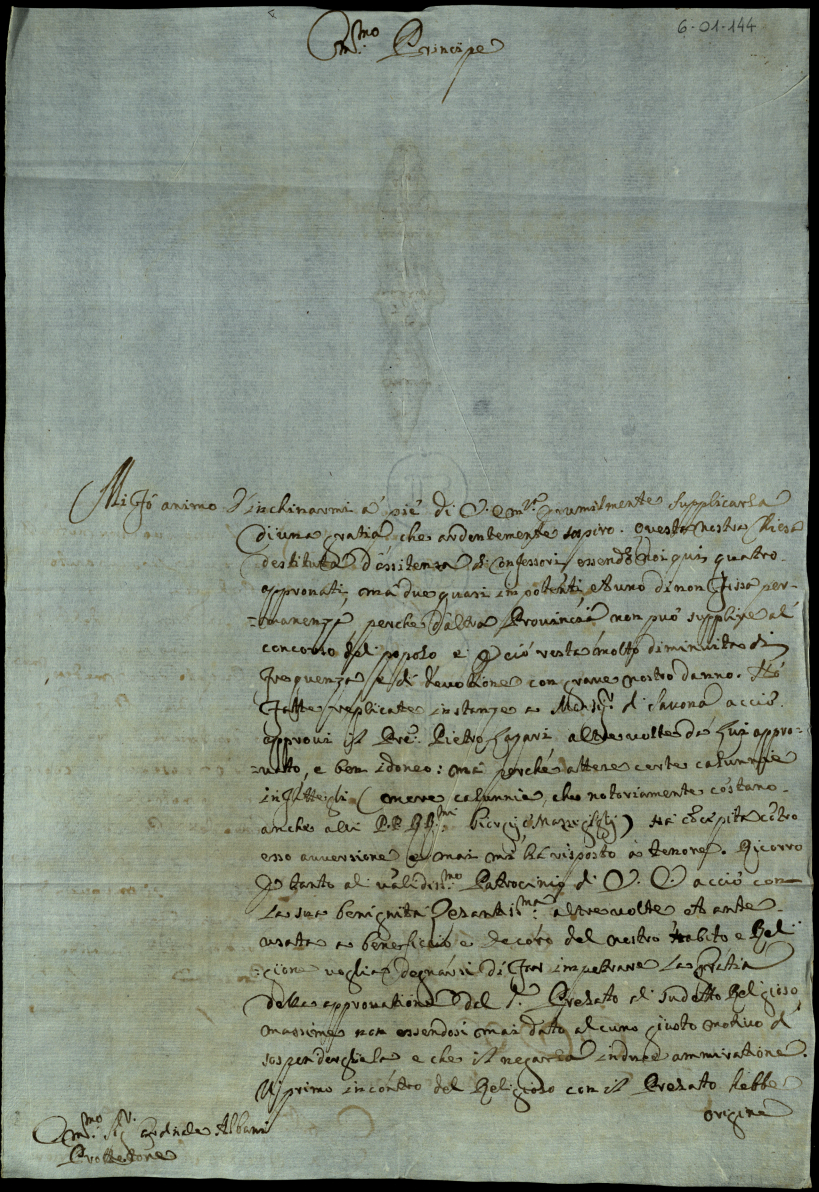 6-01-144
Em.mo Principe
Mi fó animo d'inchinarmi a' piè di V. Em.za e umilmente supplicarla
di una gratia che ardentemente sospiro. Questa nostra Chiesa
destituta d'assistenza di Confessori, essendo noi qui quatro
approuati, ma due quasi impotenti, et uno di non fissa per-
manenza perche d'altra Prouincia non può supplire al
concorso del popolo e p ciò resta molto diminuitro di
frequenza e di deuotione con graue nostro danno. Hò
fatte replicate instanze a Monsig.r di Sauona acciò
approui il Pre. Pietro Lazari altre volte da lui appro-
uato, e ben idoneo: ma perché attese certe calunnie
infattegli (mere calunnie, che notoriamente costano
anche alli P.P. RR.mi) hà cõcepita cõtro
esso auuersione e mai mi hà risposto a tenore. Ricorro
p tanto al validis.mo Patrocinio di V. E. acciò con
la sua benignità altre volte et ante
usata a beneficio e decoro del nostro habito e Reli
gione voglia degnarsi di far impetrare la gratia
della approuatione dal S.r Prelato al sudetto Religioso,
massime non essendosi mai dato alcuno giusto motiuo di
sospendergliela e che il negarla induce ammiratione.
Il primo incontro del Religioso con il Prelato hebbe
origine
Em.mo Sig.r Cardinale Albani
Prottettore